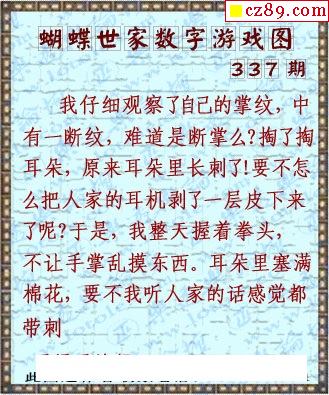 cz89.com
蝴蝶世家数字游戏图
337 期
我仔细观察了自己的掌纹，中
有一断纹，难道是断掌么?掏了掏
耳朵，原来耳朵里长刺了!要不怎
么把人家的耳机剥了一层皮下来
了呢?于是，我整天握着拳头，
不让手掌乱摸东西。耳朵里塞满
棉花，要不我听人家的话感觉都
带刺